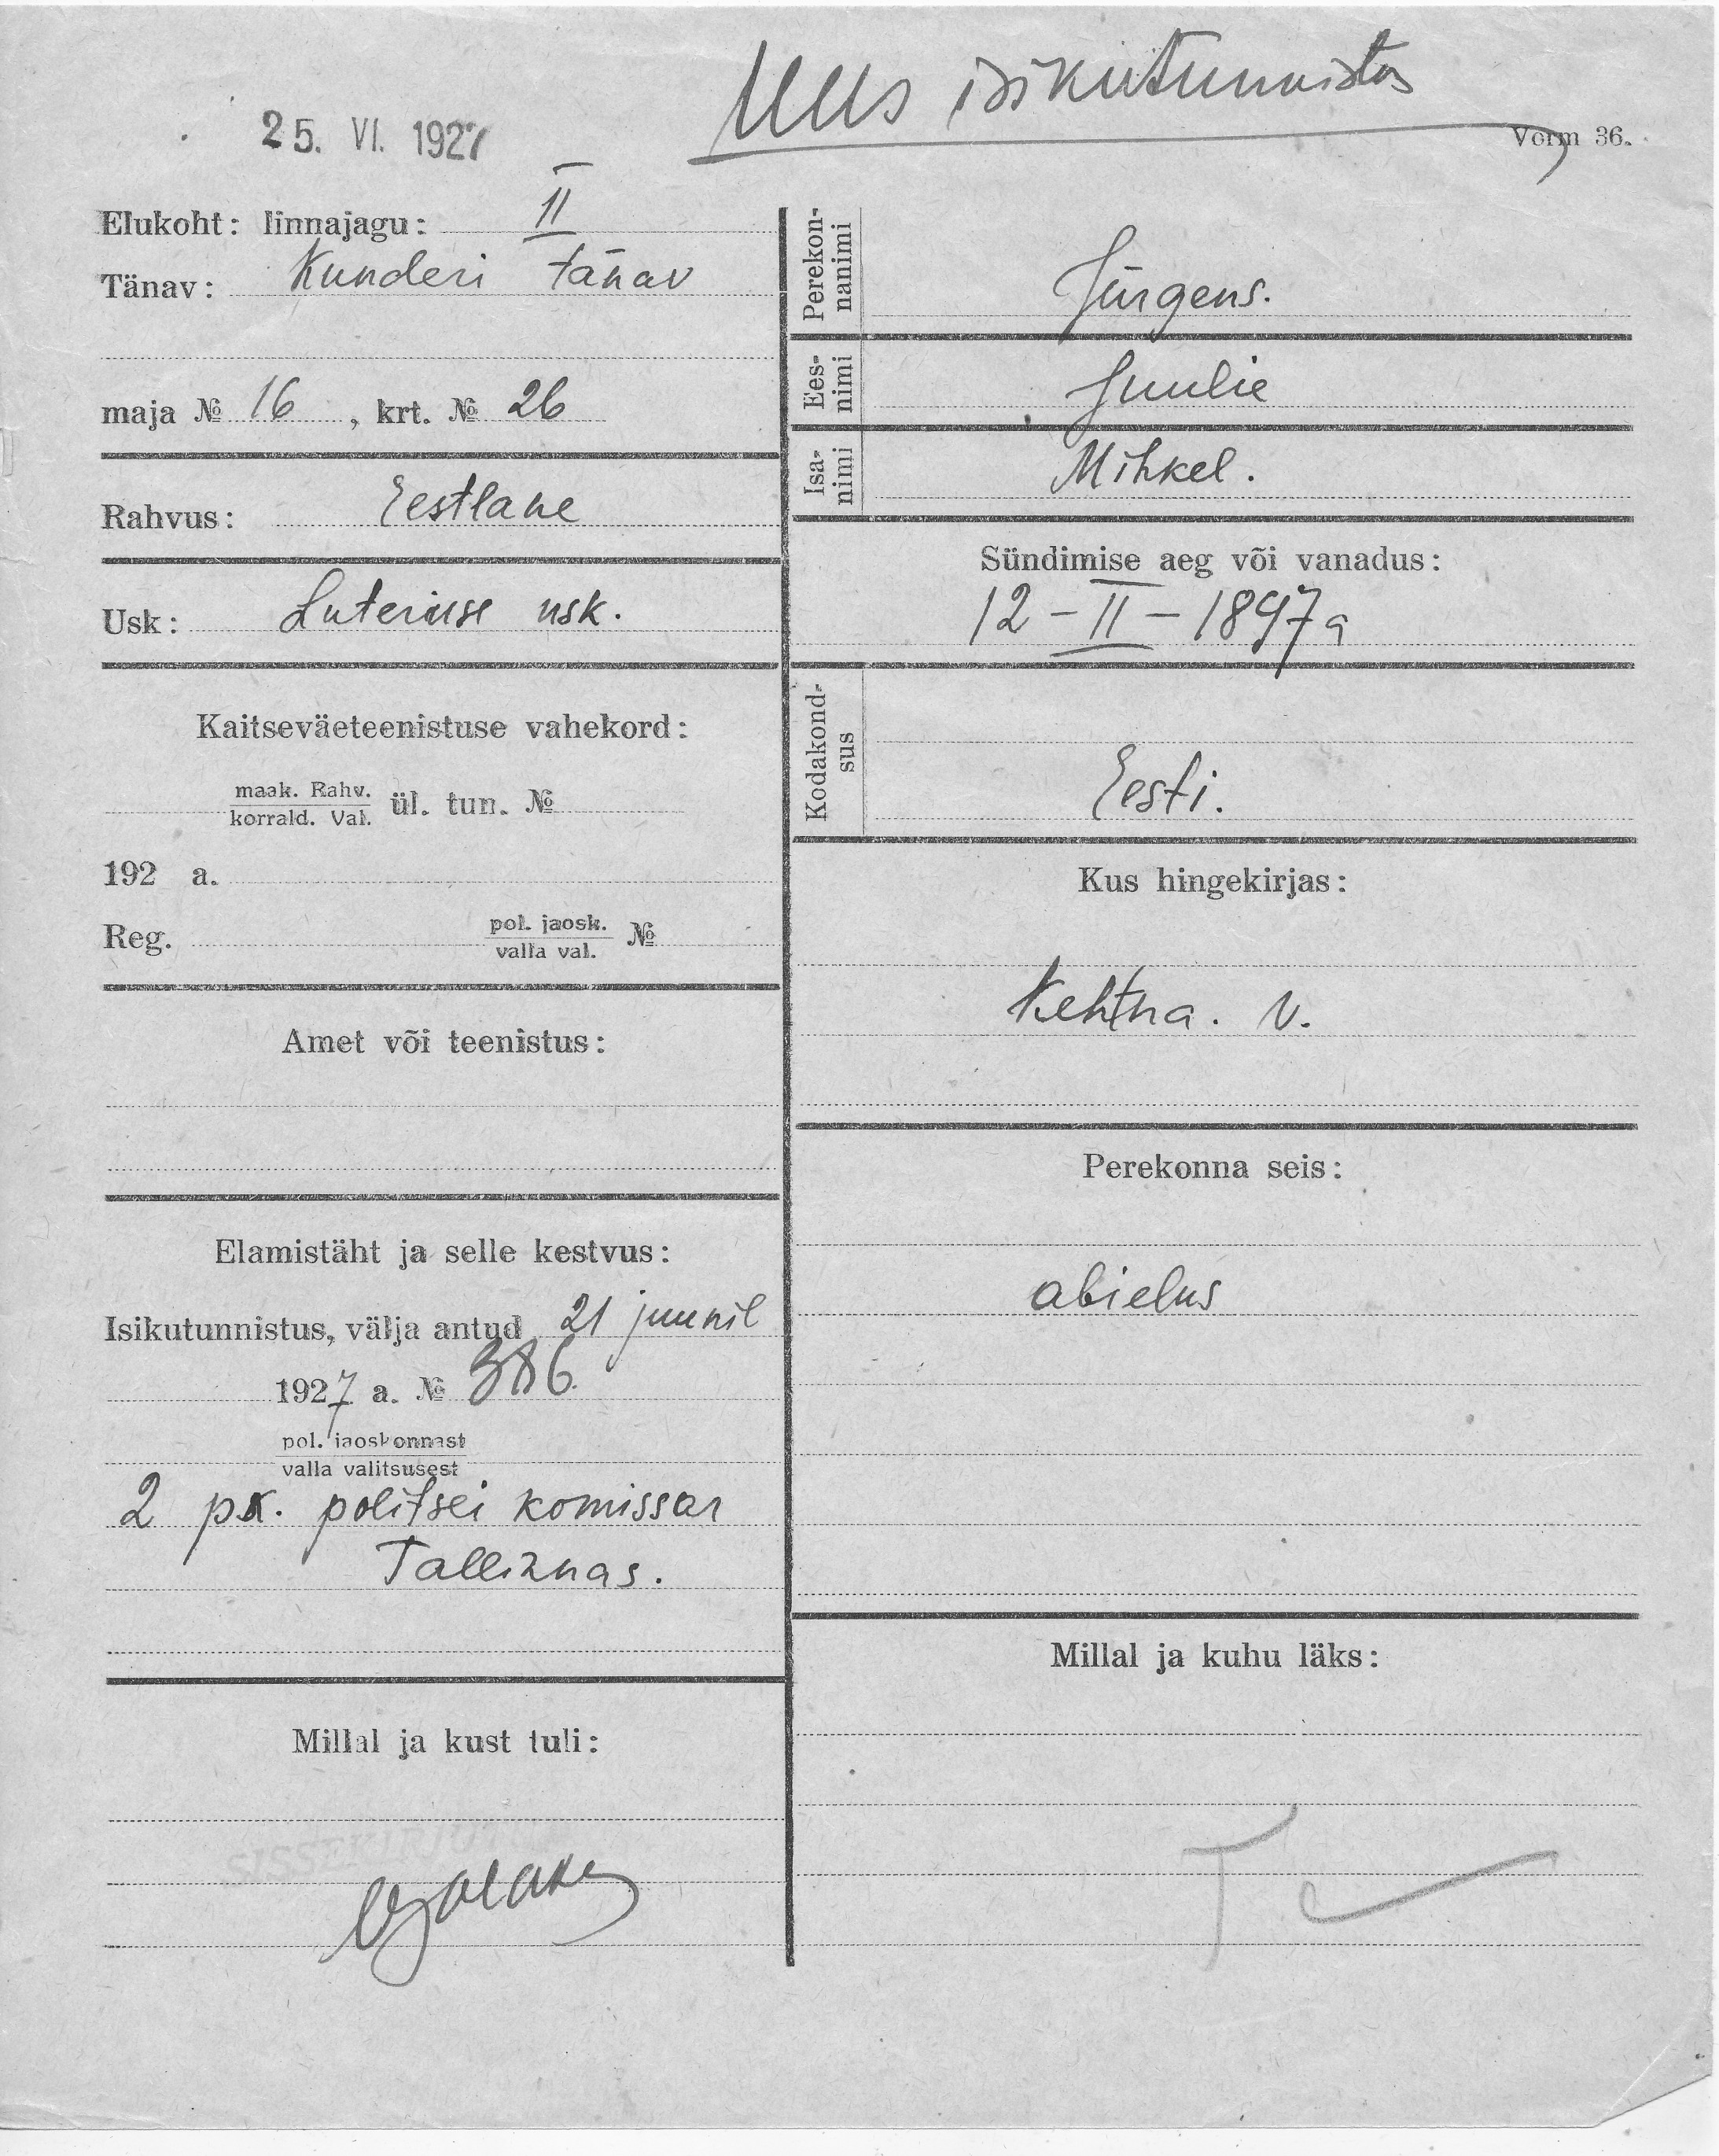 Uus isikutunnistus
25. VI. 1927
Vorm 36.
Elukoht: linnajagu: II
Tänav: Kunderi tänav
maja № 16, krt. № 26
Rahvus: Eestlane
Usk: Luteriuse usk.
Kaitseväeteenistuse vahekord:
maak. Rahv.
korrald. Val.
ül. tun. №
192 a.
Reg. pol. jaosk. №
valla val.
Amet või teenistus:
Elamistäht ja selle kestvus:
Isikutunnistus, välja antud 21 juunil
1927 a. № 386.
pol. jaoskonnast
valla valitsusest
2 pk. politsei komissar
Tallinnas.
Millal ja kust tuli:
SISSEKIRJUT
Perekon-
nanimi
Jürgens.
Ees-
nimi
Juulie
Isa-
nimi
Mihkel.
Sündimise aeg või vanadus:
12-II-1897a
Kodakond-
sus
Eesti.
Kus hingekirjas:
Kehtna. v.
Perekonna seis:
abielus
Millal ja kuhu läks:
T